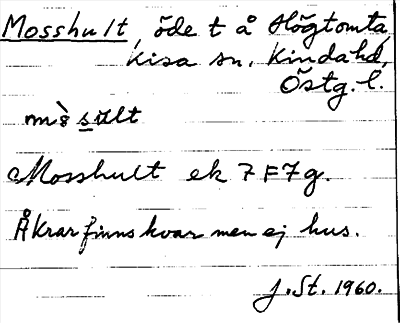 Mosshult, öde t å Högtomta
Kisa sn. Kinda hd,
Östg. l.
mòs sult
Mosshult ek 7F7g.
Åkrar finns kvar men ej hus.
J. St. 1960.